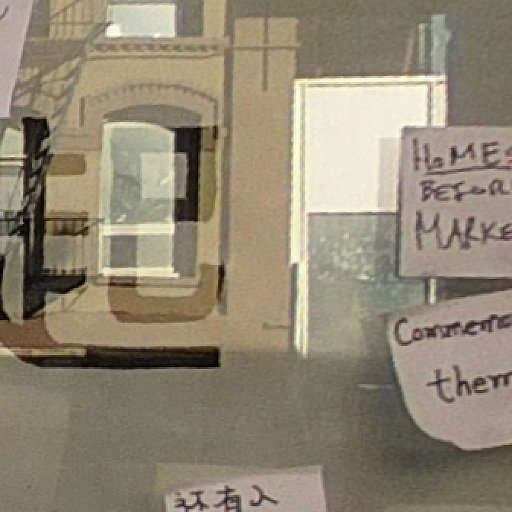 HOMES
BEFORE
MARKE
Commem
them
还有人